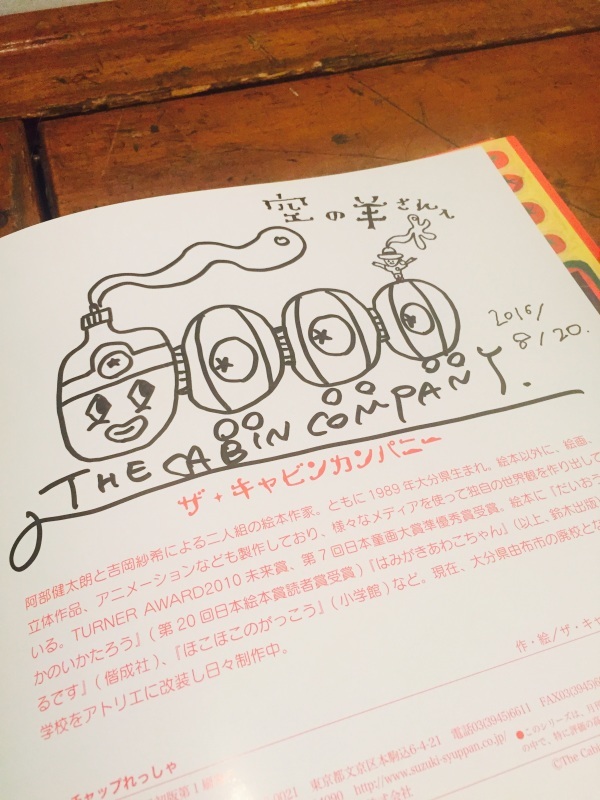 空の羊さんへ
2016/
8/20.
THE CABIN COMPANY.
ザ・キャビンカンパニー
阿部健太朗と吉岡紗希による二人組の絵本作家。ともに1989年大分県生まれ。絵本以外に、絵画、
立体作品、アニメーションなども製作しており、様々なメディアを使って独自の世界観を作り出して
いる。TURNER AWARD2010 未来賞、第7回日本童画大賞準優秀賞受賞。絵本に『だいおう
かのいかたろう』(第20回日本絵本賞読者賞受賞)『はみがきあわこちゃん』(以上、鈴木出版)
るです』(偕成社)、『ほこほこのがっこう』(小学館)など。現在、大分県由布市の廃校とな
学校をアトリエに改装し日々制作中。
作・絵/ザ・キャ
チャップれっしゃ
初版第1刷
0021 東京都文京区本駒込6-4-21 電話03(3945)6611 FAX03(3945)6
4090 http://www.suzuki-syuppan.co.jp/
●このシリーズは、月
の中で、特に評価の高
株式会社
©The Cab